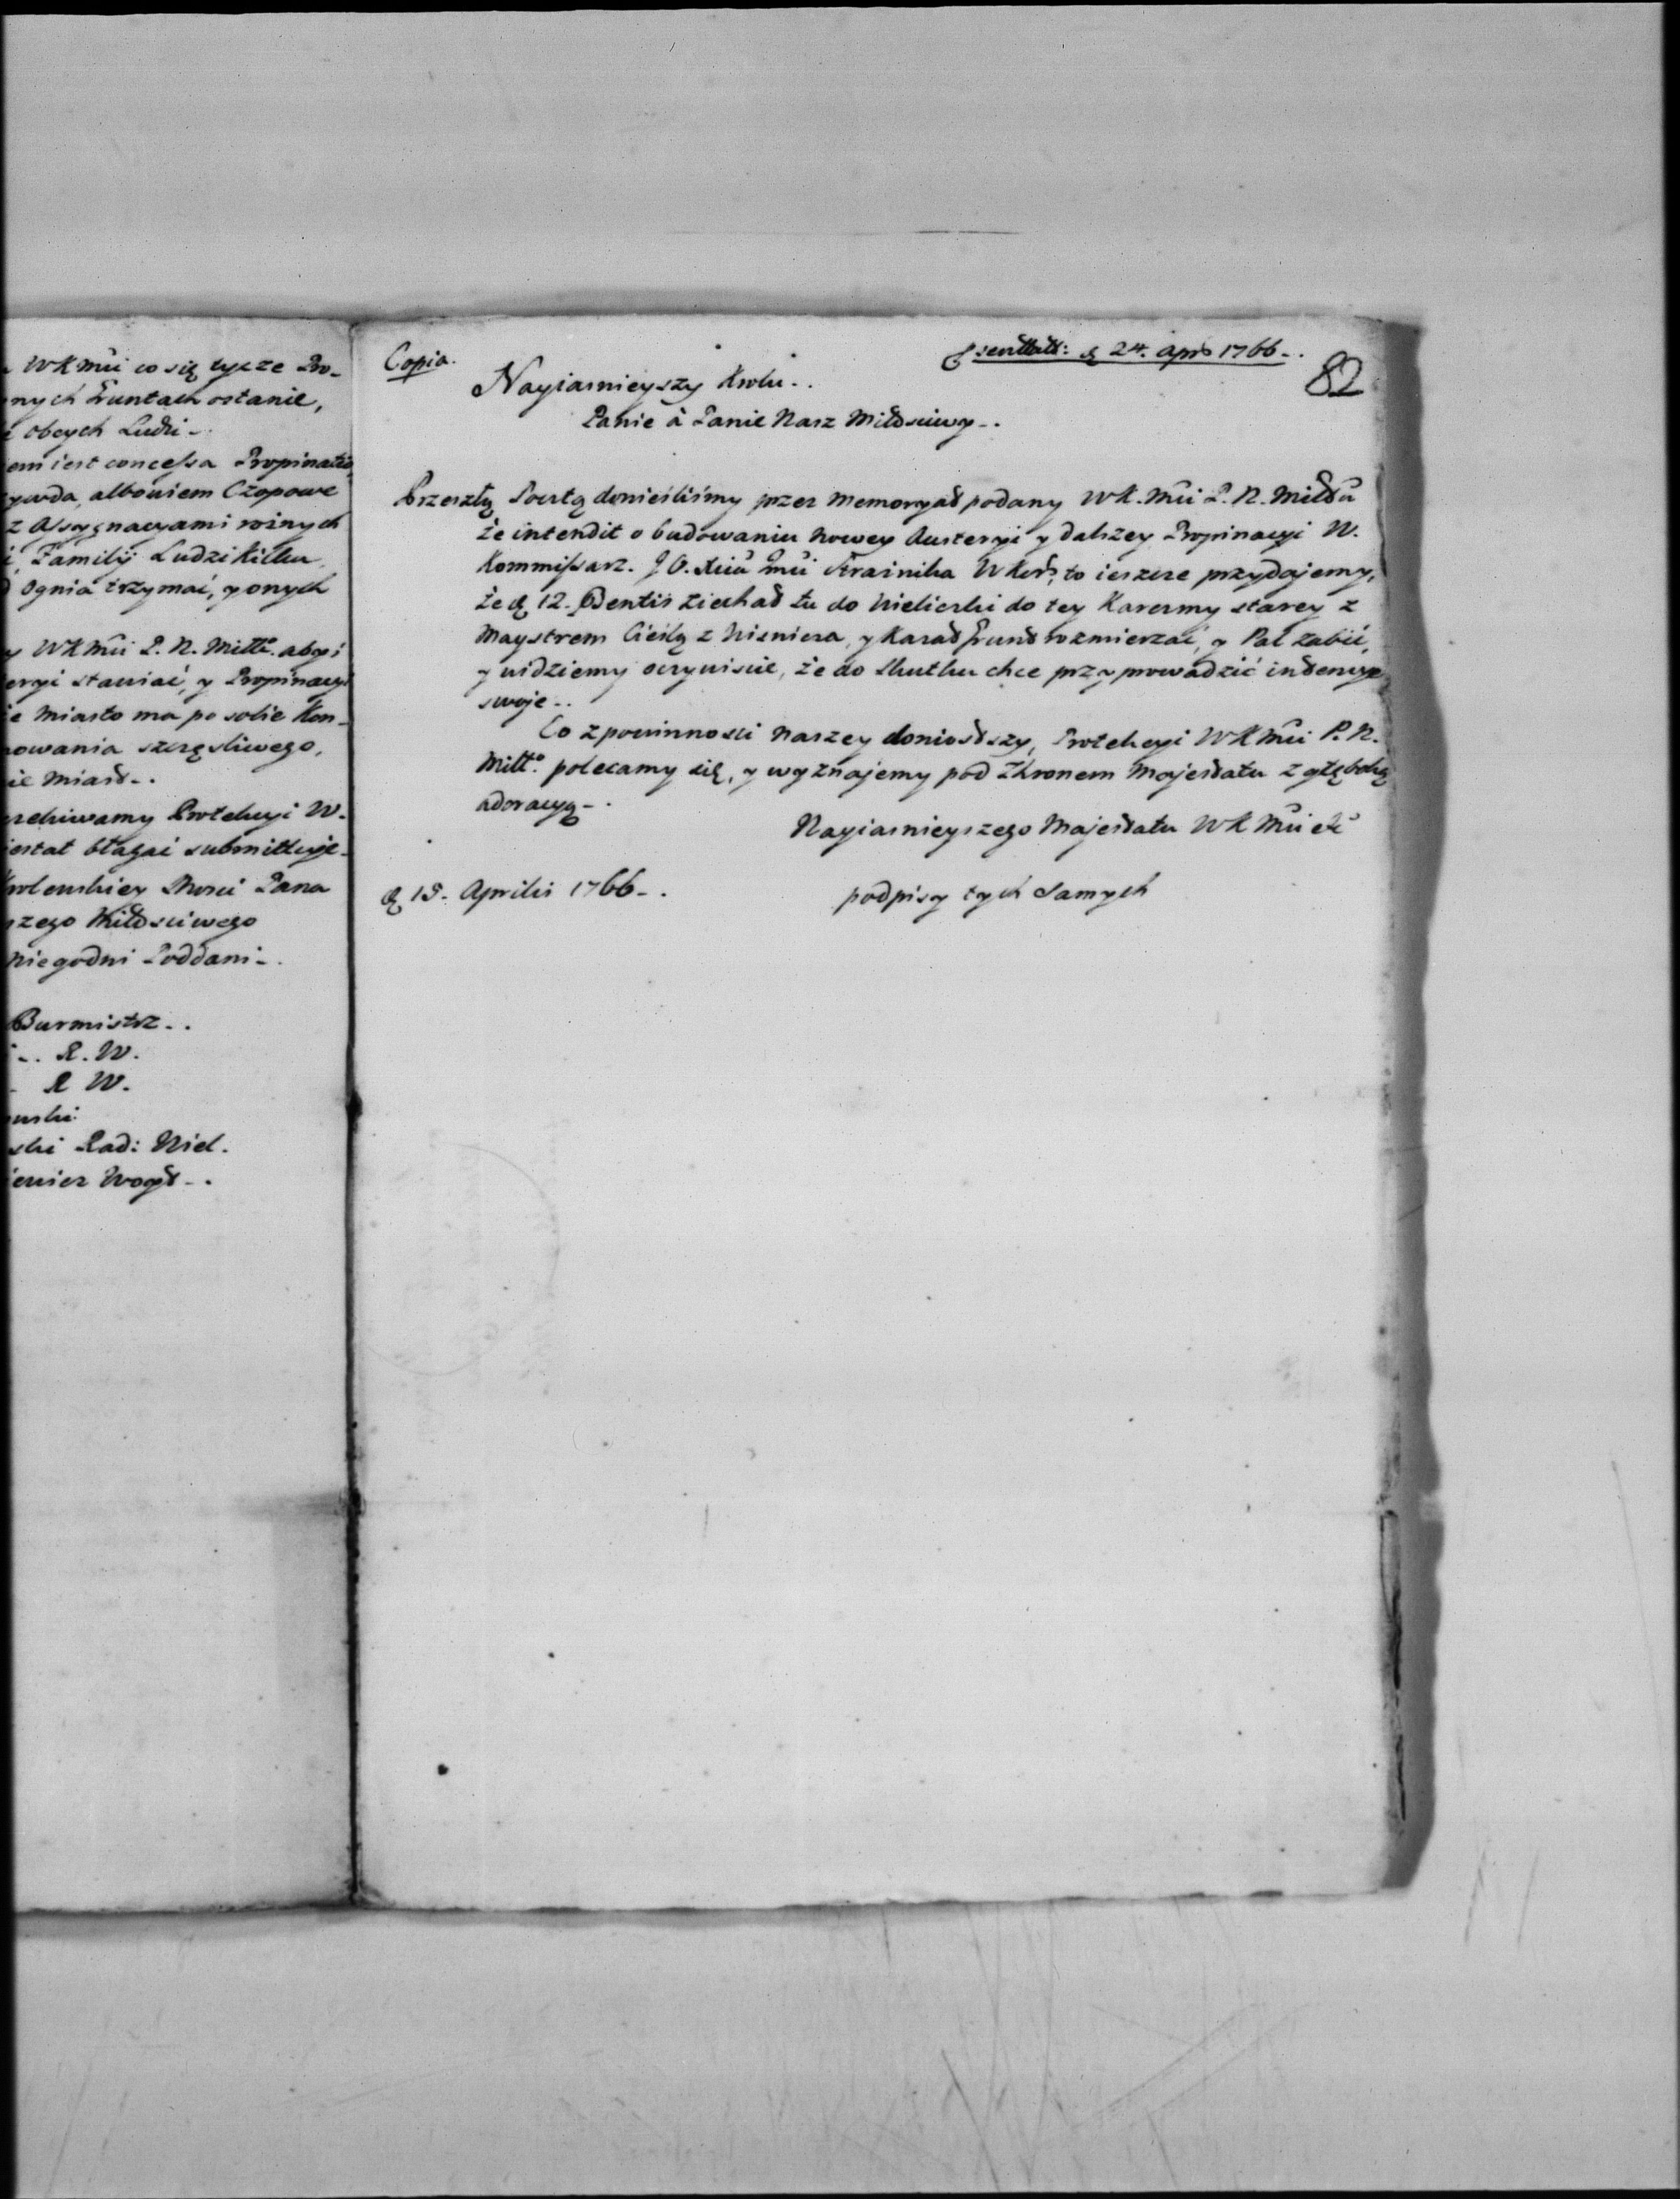 WKMci co się tycze Pro-
nych Gruntach ostanie,
obcych Ludzi -
em iest concessa Propinatio
ywda, albowiem Czopowe
z Assygnacyami roznych
Familij Ludzi kilku
Ognia trzymać, y onych
y WKMci P. N. Miłłº. aby i
eryi stawiać, y Propinacyi
ie Miasto ma po sobie Kon-
nowania szczęsliwego,
ie Miast - .
rzekiwamy Protekcyi W.
iestat błagać submittuje-
Krolewskiey Mosci Pana
szego Miłosciwego
Niegodni Poddani - .
Burmistrz - .
- . R. W.
- R W.
wski
ski Rad: Niel.
iewicz Woyt - .
Copia.
Psenttatt: d 24. Apris 1766 - .
82
Nayiasnieyszy Krolu - .
Panie à Panie Nasz Miłosciwy - .
Przeszłą Pocztą donieśliśmy przez Memoryał podany WK.Mci P. N. Miłłu
że intendit o budowaniu Nowey Austeryi y dalszey Propinacyi W.
Kommissarz. J O. Xcia Jmci Strażnika WKor, to ieszcze przydajemy,
że d 12. Psentis ziechał tu do Nieliszki do tey Karczmy starey z
Maystrem Cieślą z Nisniera, y Kazał Grunt rozmierzać, y Pal zabić,
y widziemy oczywiscie, że do Skutku chce przyprowadzić intencye
swoje - .
Co z powinnosci Naszey doniosłszy, Protekcyi WKMci P. N.
Miłłº. polecamy się, y wyznajemy pod Thronem Majestatu z głęboką
adoracyą - .
Nayiasnieyszego Majestatu WKMci etc
d 15. Aprilis 1766 - .
podpisy tych Samych